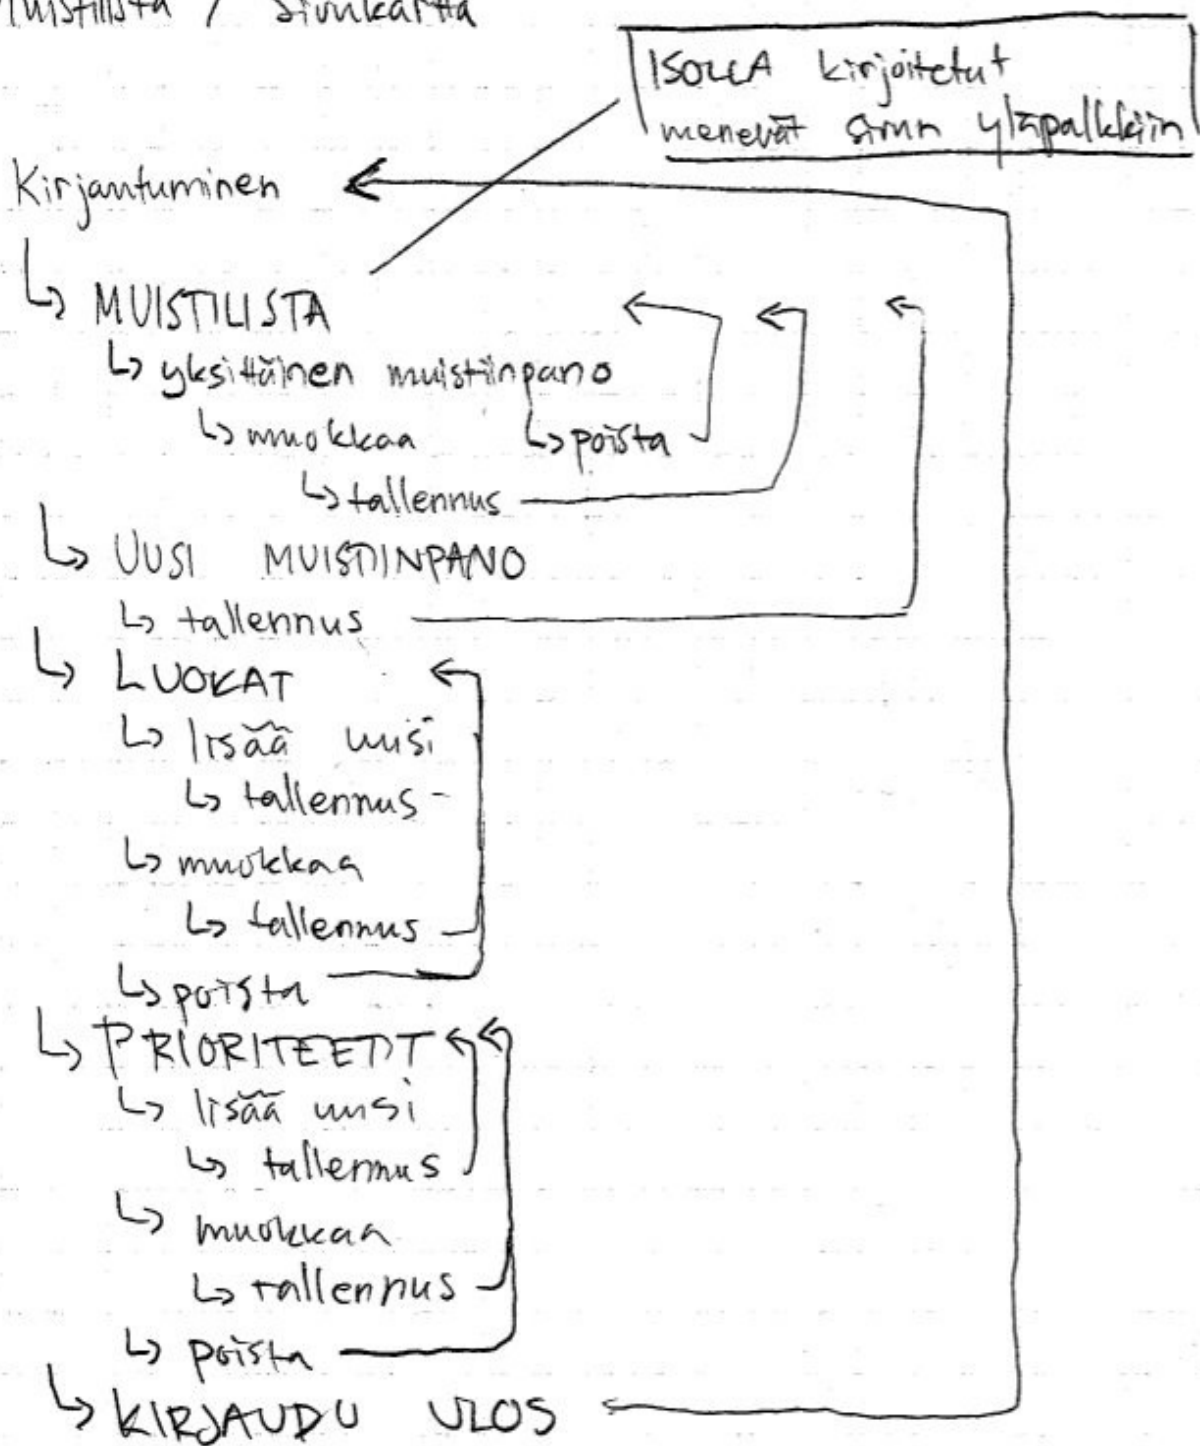 Muistilista / Sivukartta
ISOLLA kirjoitetut
menevät sivun yläpalkkiin
Kirjautuminen
MUISTILISTA
yksittäinen muistiinpano
muokkaa poista
tallennus
UUSI MUISTIINPANO
tallennus
LUOKAT
lisää uusi
tallennus
muokkaa
tallennus
poista
PRIORITEETIT
lisää uusi
tallennus
muokkaa
tallennus
poista
KIRJAUDU ULOS